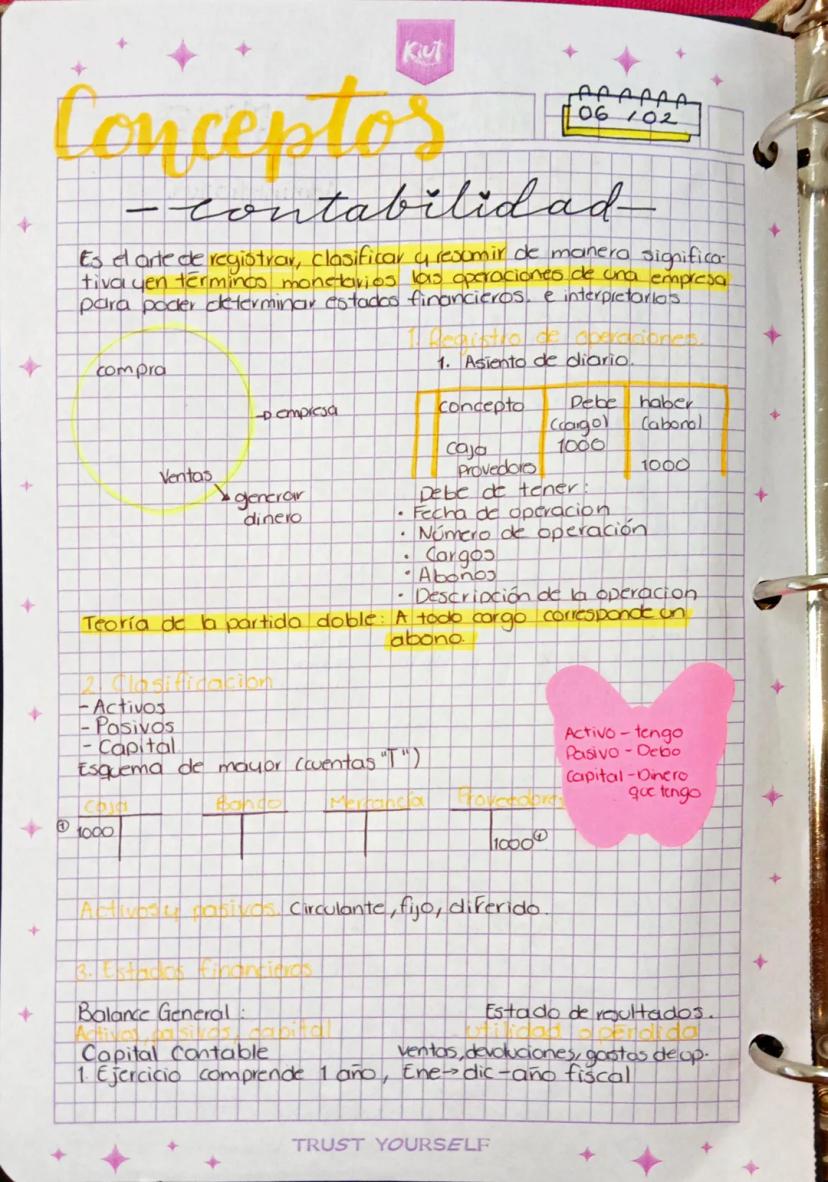 Kiut
Conceptos
06 / 02
- contabilidad -
Es el arte de registrar, clasificar y resumir de manera significa-
tiva y en términos monetarios las operaciones de una empresa
para poder determinar estados financieros. e interpretarlos
compra
→ empresa
Ventas
↘ generar
dinero
1. Registro de operaciones.
1. Asiento de diario.
concepto Debe haber
(cargo) (abono)
caja 1000
Provedores 1000
Debe de tener:
· Fecha de operacion
· Número de operación
· Cargos
· Abonos
· Descripción de la operacion
Teoría de la partida doble: A todo cargo corresponde un
abono.
2. Clasificacion
- Activos
- Pasivos
- Capital
Esquema de mayor (cuentas "T")
Activo - tengo
Pasivo - Debo
Capital - Dinero
que tengo
Caja Banco Mercancía Proveedores
① 1000 1000 ①
Activos y pasivos. Circulante, fijo, diferido.
3. Estados financieros
Balance General: Estado de resultados.
Activos, pasivos, capital utilidad o perdida
Capital Contable ventas, devoluciones, gastos de op.
1. Ejercicio comprende 1 año, Ene → dic - año fiscal
TRUST YOURSELF